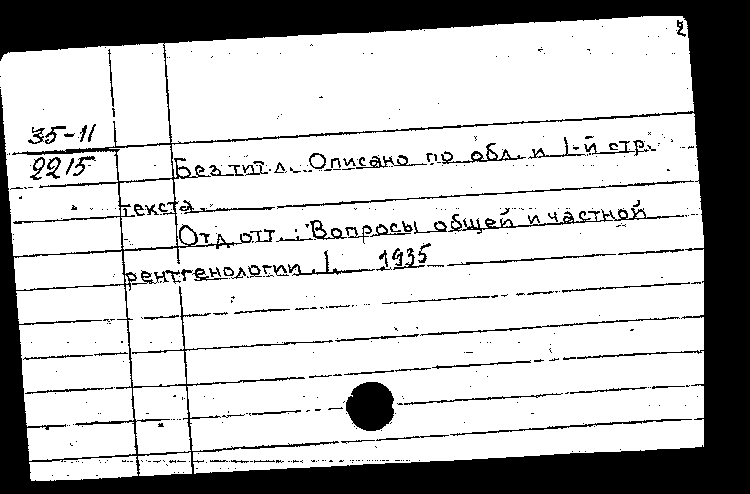 2
35-11
2215
Без тит. л. Описано по обл. и 1-й стр.
текста.
Отд. отт.: Вопросы общей и частной
рентгенологии. I. 1935